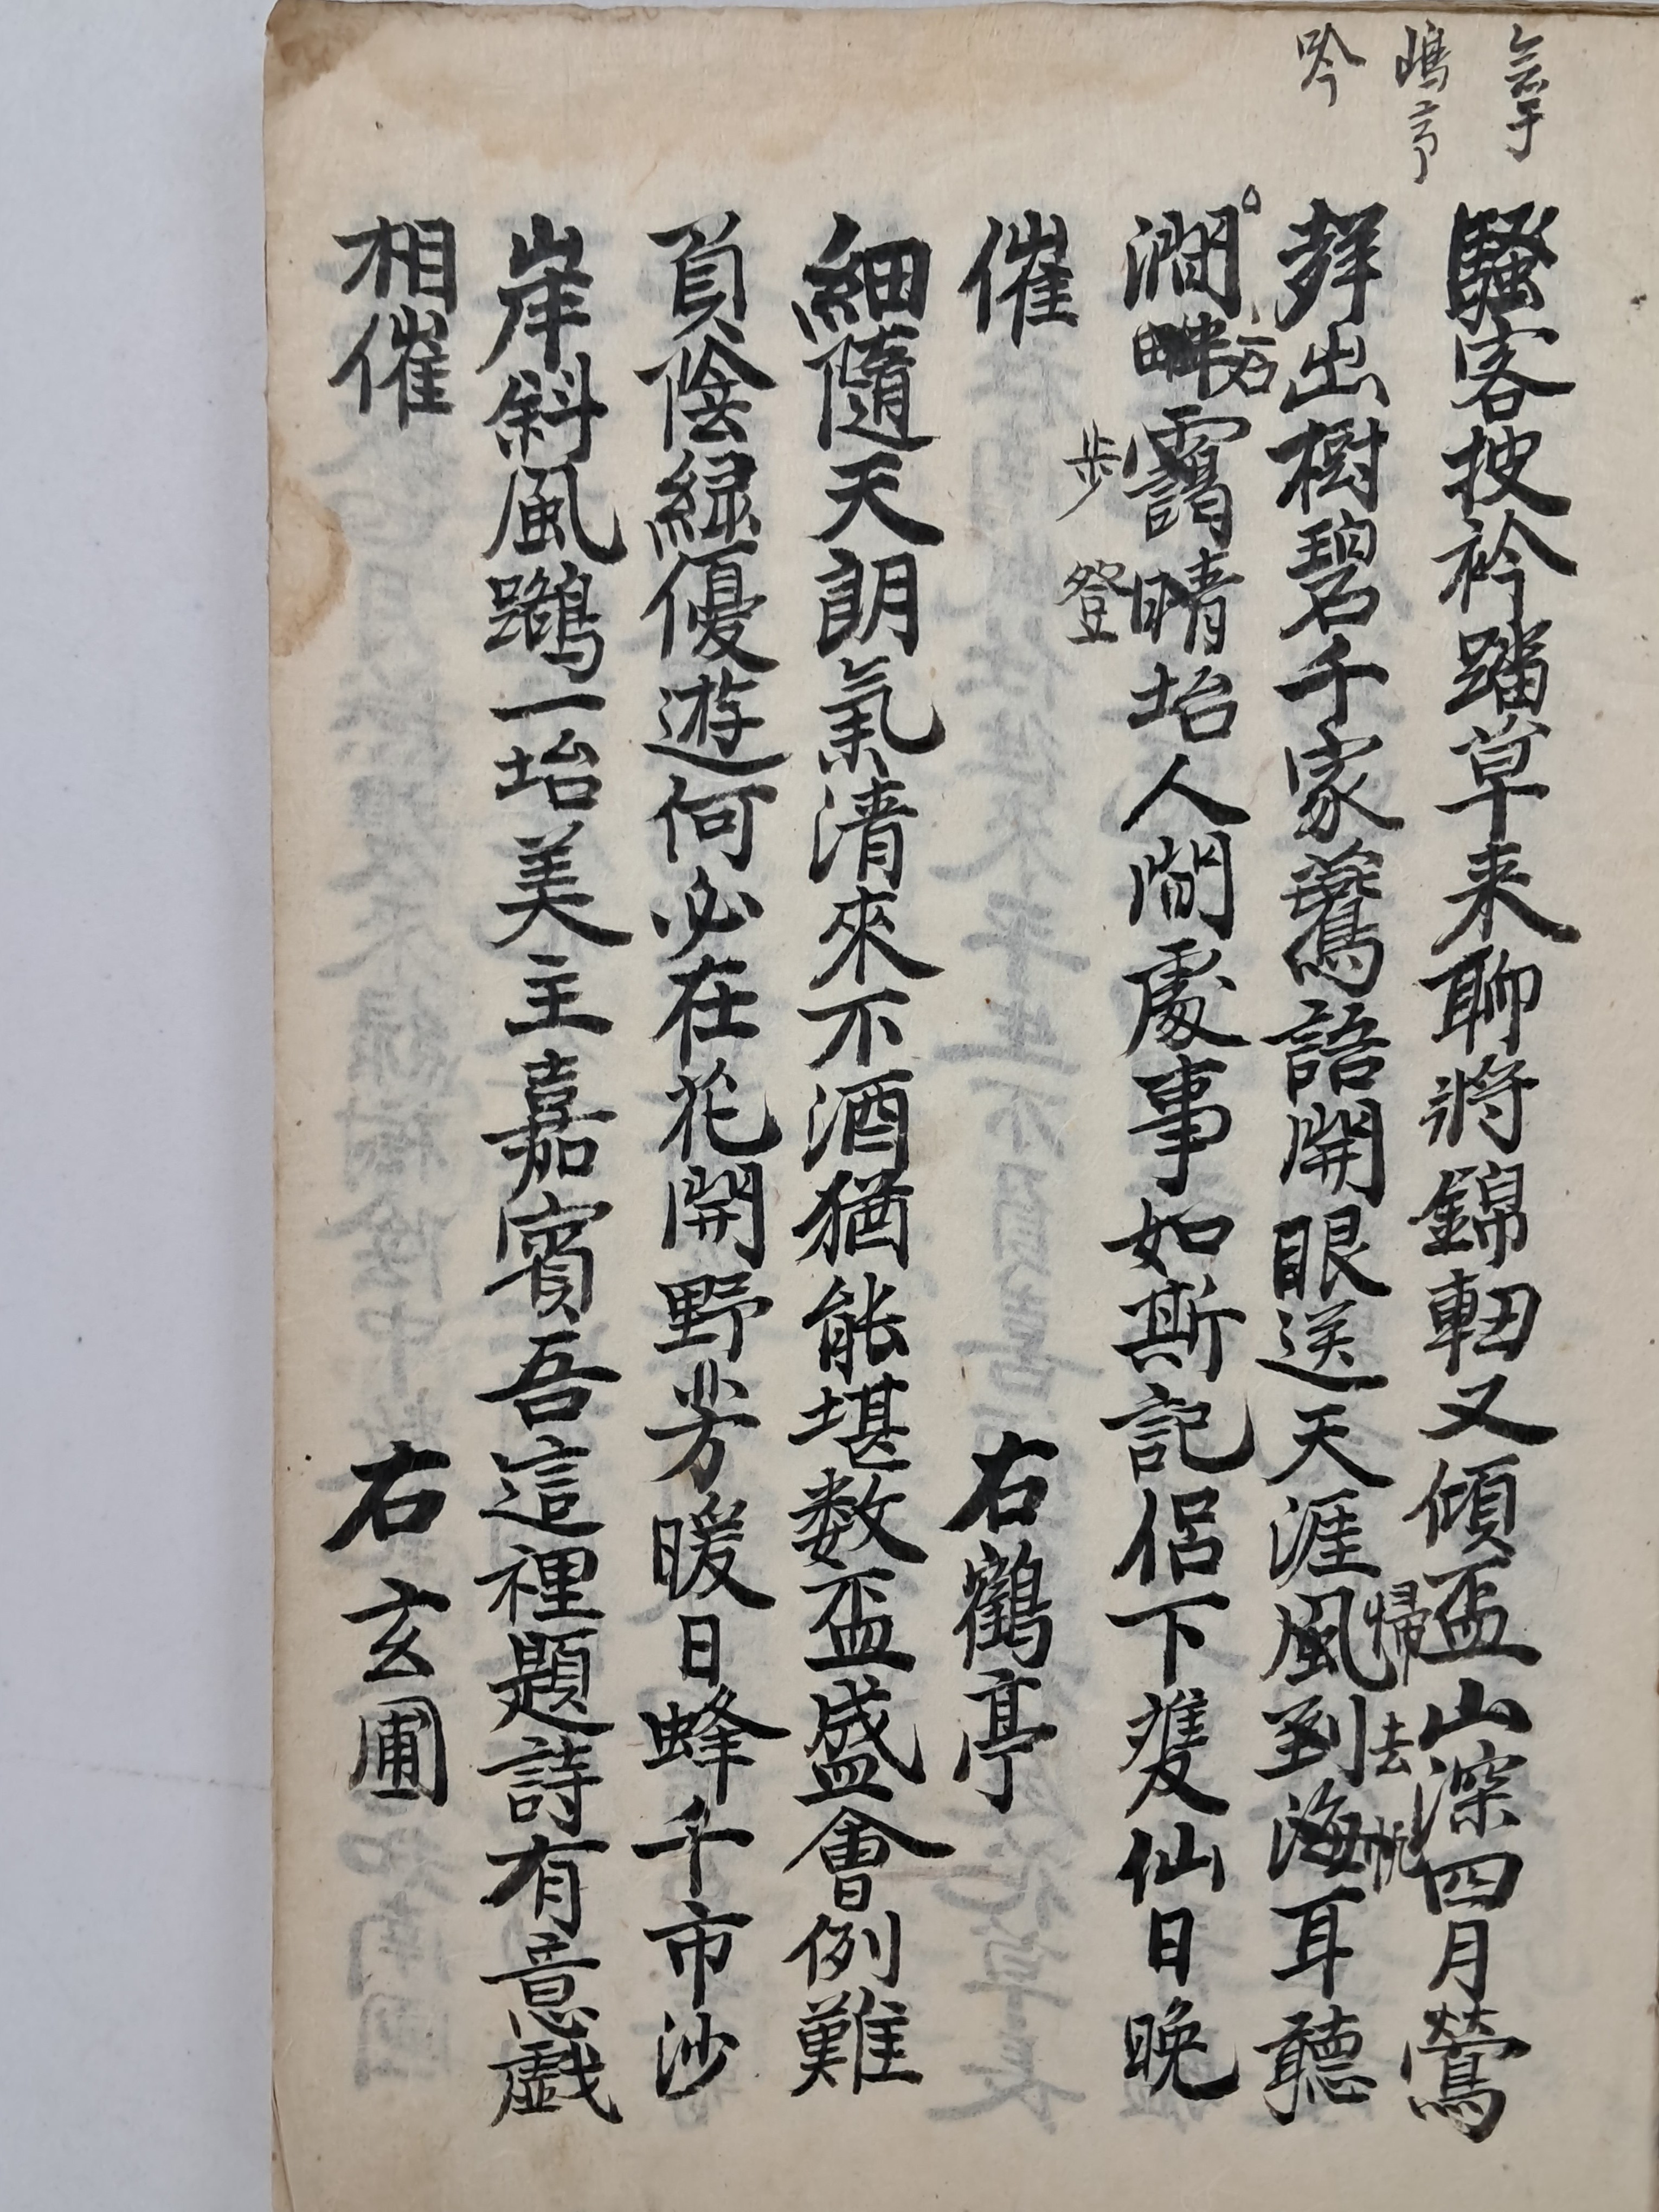 吟
騷客披衿踏草来聊將錦軸又傾盃山深四月鶯
出樹碧千家燕語開眼送天涯風到海耳聽
帰去帆
澗畔靄晴坮人間處事如斯記侶下雙仙日晚
石
步登
催 右鶴亭
細隨天朗氣清來不酒猶能堪数盃盛會例難
負陰綠優遊何必在花開野芳暖日蜂千市沙
岸斜風鷗一坮美主嘉賓吾這裡題詩有意戱
相催 右玄圃